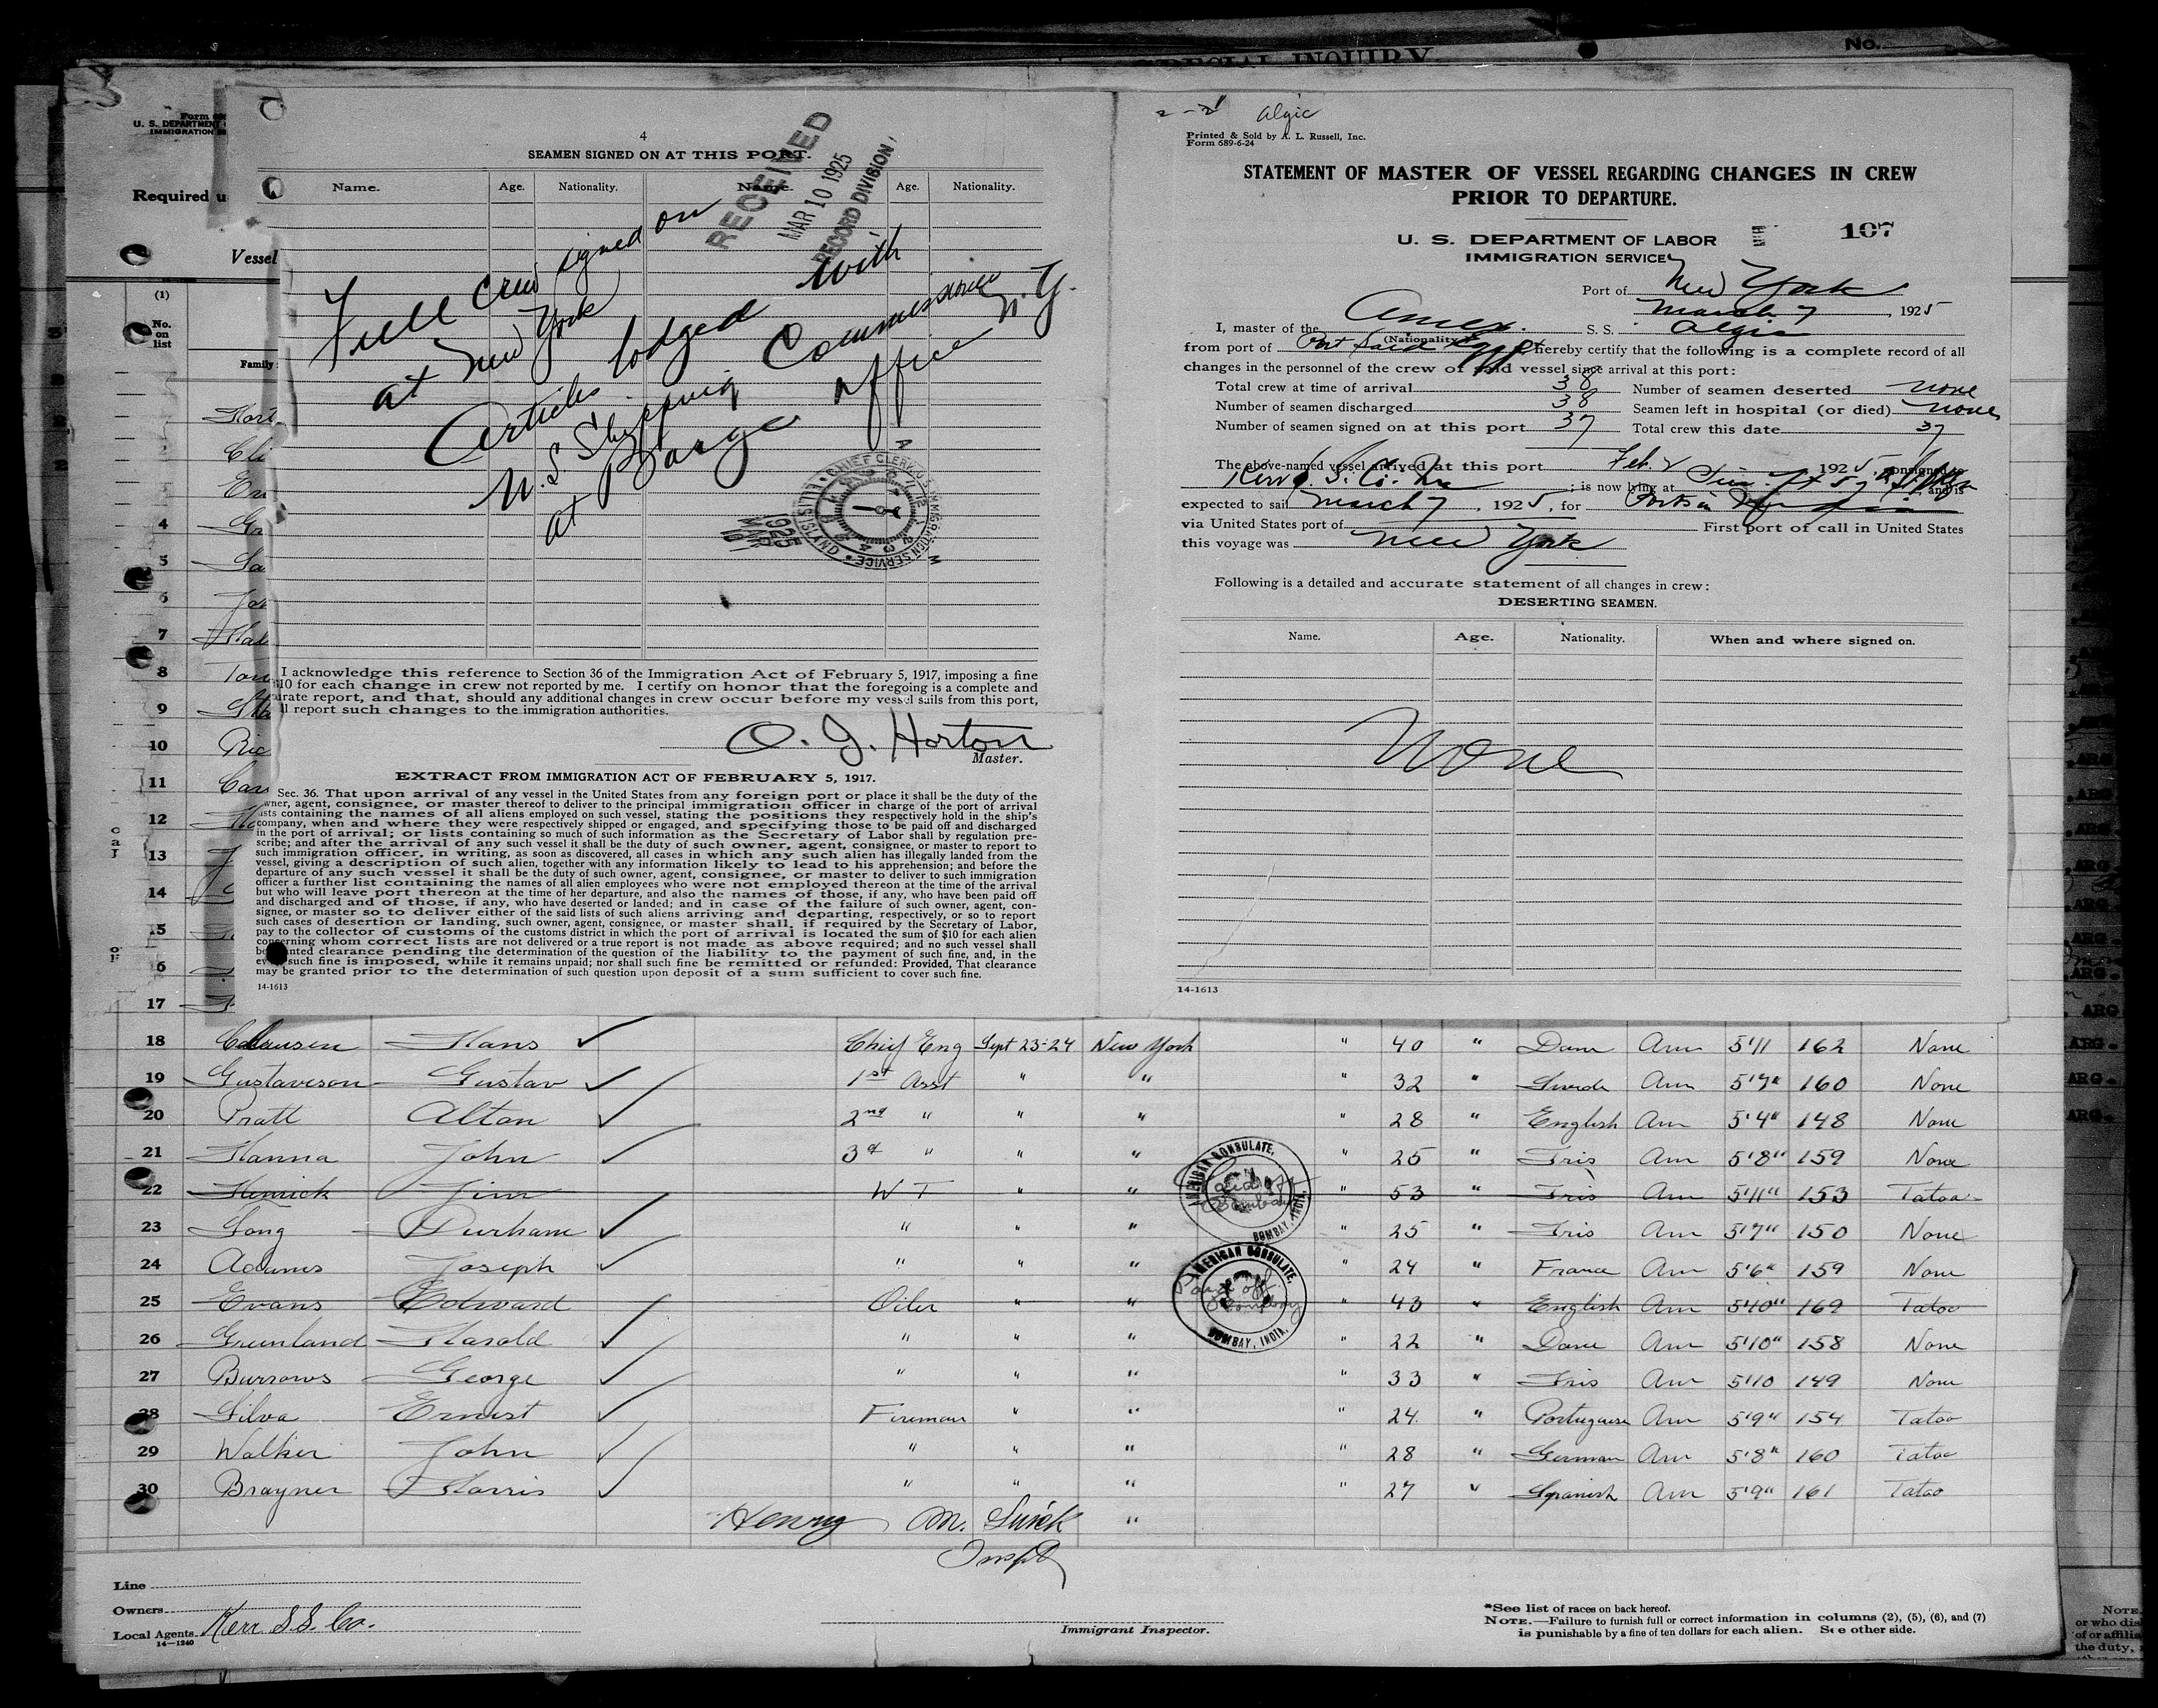 SPECIAL INQUIRY
No.
Form
U. S. DEPARTMENT
IMMIGRATION
Required u
Vessel
(1)
No.
on
list
Family
4
SEAMEN SIGNED ON AT THIS PORT.
Name. Age. Nationality. Name. Age. Nationality.
RECEIVED
MAR 10 1925
RECORD DIVISION
Full crew signed on
at New York
Articles lodged with
U.S Shipping Commissioner
at Barge office N.Y.
CHIEF CLERK U.S. IMMIGRATION SERVICE
ELLIS ISLAND
1925
MAR
10
I acknowledge this reference to Section 36 of the Immigration Act of February 5, 1917, imposing a fine
$10 for each change in crew not reported by me. I certify on honor that the foregoing is a complete and
urate report, and that, should any additional changes in crew occur before my vessel sails from this port,
ll report such changes to the immigration authorities.
O. J. Horton
Master.
EXTRACT FROM IMMIGRATION ACT OF FEBRUARY 5, 1917.
Sec. 36. That upon arrival of any vessel in the United States from any foreign port or place it shall be the duty of the
owner, agent, consignee, or master thereof to deliver to the principal immigration officer in charge of the port of arrival
lists containing the names of all aliens employed on such vessel, stating the positions they respectively hold in the ship's
company, when and where they were respectively shipped or engaged, and specifying those to be paid off and discharged
in the port of arrival; or lists containing so much of such information as the Secretary of Labor shall by regulation pre-
scribe; and after the arrival of any such vessel it shall be the duty of such owner, agent, consignee, or master to report to
such immigration officer, in writing, as soon as discovered, all cases in which any such alien has illegally landed from the
vessel, giving a description of such alien, together with any information likely to lead to his apprehension; and before the
departure of any such vessel it shall be the duty of such owner, agent, consignee, or master to deliver to such immigration
officer a further list containing the names of all alien employees who were not employed thereon at the time of the arrival
but who will leave port thereon at the time of her departure, and also the names of those, if any, who have been paid off
and discharged and of those, if any, who have deserted or landed; and in case of the failure of such owner, agent, con-
signee, or master so to deliver either of the said lists of such aliens arriving and departing, respectively, or so to report
such cases of desertion or landing, such owner, agent, consignee, or master shall, if required by the Secretary of Labor,
pay to the collector of customs of the customs district in which the port of arrival is located the sum of $10 for each alien
concerning whom correct lists are not delivered or a true report is not made as above required; and no such vessel shall
be granted clearance pending the determination of the question of the liability to the payment of such fine, and, in the
event such fine is imposed, while it remains unpaid; nor shall such fine be remitted or refunded: Provided, That clearance
may be granted prior to the determination of such question upon deposit of a sum sufficient to cover such fine.
14-1613
Algic
Printed & Sold by A. L. Russell, Inc.
Form 689-6-24
STATEMENT OF MASTER OF VESSEL REGARDING CHANGES IN CREW
PRIOR TO DEPARTURE.
U. S. DEPARTMENT OF LABOR
IMMIGRATION SERVICE
107
Port of New York
March 7, 1925
I, master of the Amer. S. S. Algic
(Nationality)
from port of Port Said Egypt hereby certify that the following is a complete record of all
changes in the personnel of the crew of said vessel since arrival at this port:
Total crew at time of arrival 38 Number of seamen deserted none
Number of seamen discharged 38 Seamen left in hospital (or died) none
Number of seamen signed on at this port 37 Total crew this date 37
The above-named vessel arrived at this port Feb. 2 1925, consigned to
Kerr S. S. Co. ; is now lying at , and is
expected to sail March 7, 1925, for Ports in
via United States port of First port of call in United States
this voyage was New York
Following is a detailed and accurate statement of all changes in crew:
DESERTING SEAMEN.
Name. Age. Nationality. When and where signed on.
None
14-1613
18 Clausen Hans Chief Eng Sept 23-24 New York " 40 " Dane Am 5'11 162 None
19 Gustaveson Gustav 1st Asst " " " 32 " Swede Am 5'7" 160 None
20 Pratt Alton 2nd " " " " 28 " English Am 5'4" 148 None
21 Hanna John 3d " " " " 25 " Iris Am 5'8" 159 None
22 Henrick Jim W T " " " 53 " Iris Am 5'11" 153 Tatoo
23 Long Durham " " " " 25 " Iris Am 5'7" 150 None
24 Adams Joseph " " " " 24 " France Am 5'6" 159 None
25 Evans Edward Oiler " " " 43 " English Am 5'10" 169 Tatoo
26 Greenland Harold " " " " 22 " Dane Am 5'10" 158 None
27 Burrows George " " " " 33 " Iris Am 5'10 149 None
28 Silva Ernest Fireman " " " 24 " Portuguese Am 5'9" 154 Tatoo
29 Walker John " " " " 28 " German Am 5'8" 160 Tatoo
30 Brayner Harris " " " " 27 " Spanish Am 5'9" 161 Tatoo
AMERICAN CONSULATE,
Paid off
Bombay
BOMBAY, INDIA.
AMERICAN CONSULATE,
Paid off
Bombay
BOMBAY, INDIA.
Henry M. "
Line
Owners
Local Agents Kerr S.S. Co.
14-1240
Immigrant Inspector.
*See list of races on back hereof.
NOTE.—Failure to furnish full or correct information in columns (2), (5), (6), and (7)
is punishable by a fine of ten dollars for each alien. See other side.
NOTE.
or who dis
of or affilia
the duty,